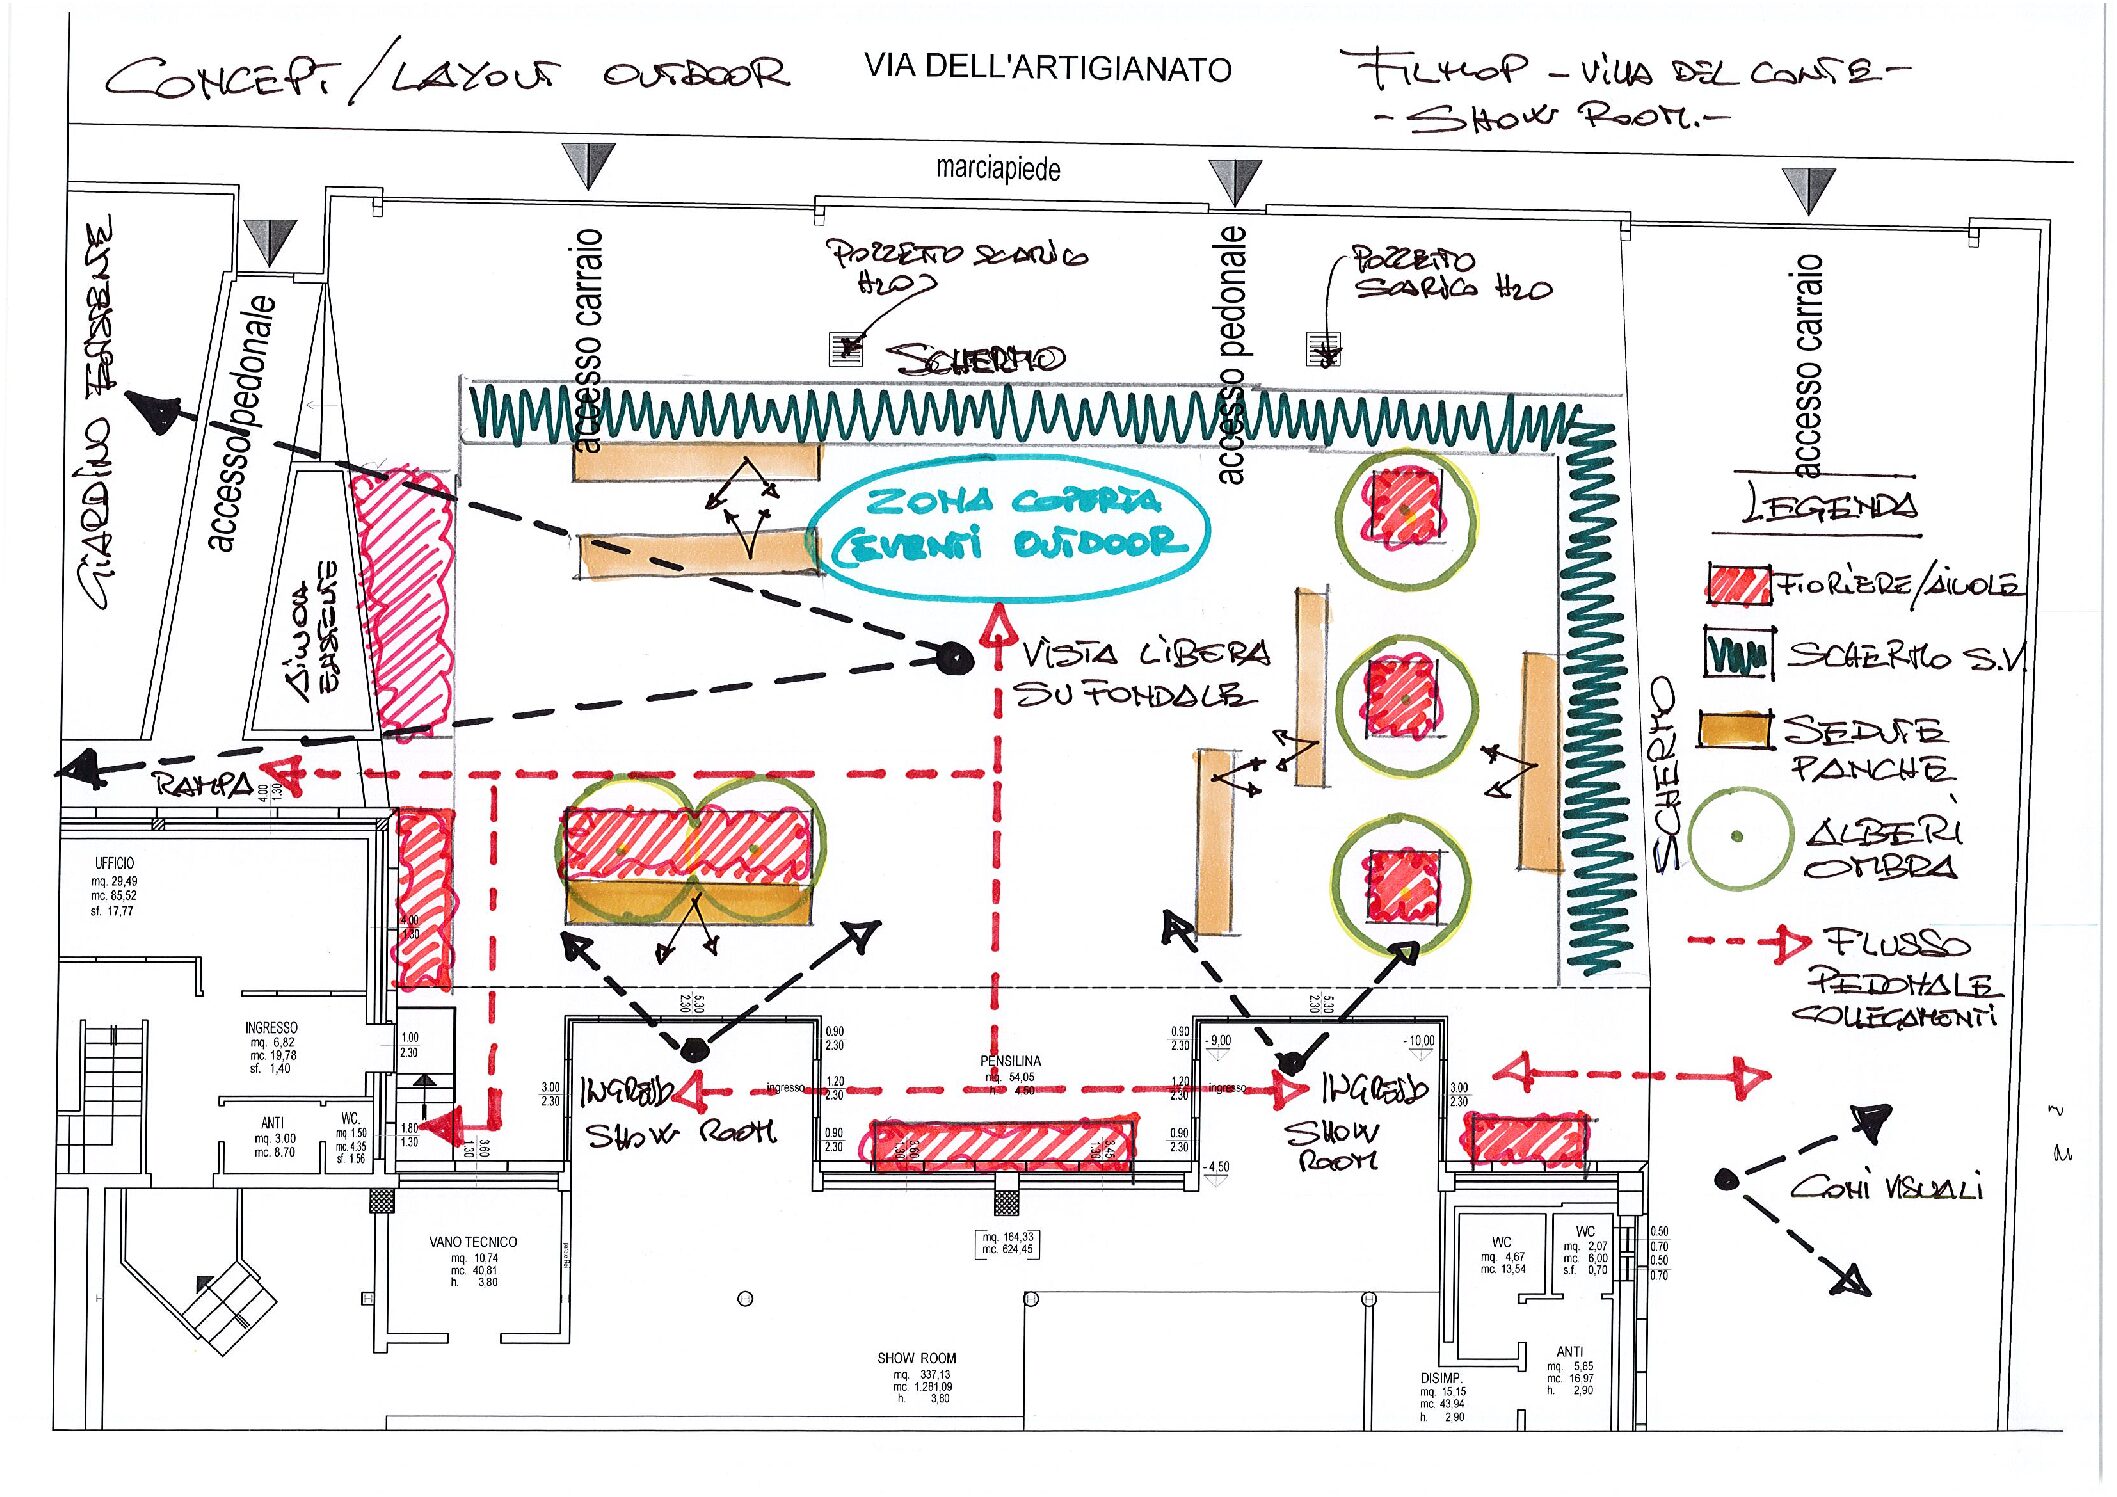 CONCEPT/LAYOUT OUTDOOR
VIA DELL'ARTIGIANATO
- VILLA DEL CONTE -
- SHOW ROOM. -
marciapiede
GIARDINO
accesso pedonale
accesso carraio
POZZETTO SCARICO
H2O
accesso pedonale
POZZETTO
SCARICO H2O
accesso carraio
SCHERMO
ZONA COPERTA
(EVENTI OUTDOOR
AIUOLA
VISTA LIBERA
SU FONDALE
SCHERMO
LEGENDA
FIORIERE/AIUOLE
SCHERMO S.V.
SEDUTE
PANCHE
ALBERI
OMBRA
FLUSSO
PEDONALE
COLLEGAMENTI
CONI VISUALI
RAMPA
4.00
1.30
UFFICIO
mq. 29,49
mc. 85,52
sf. 17,77
4.00
1.30
INGRESSO
mq. 6,82
mc. 19,78
sf. 1,40
1.00
2.30
ANTI
mq. 3.00
mc. 8.70
WC.
mq. 1.50
mc. 4.35
sf. 1.56
1.80
1.30
3.60
1.30
3.00
2.30
5.30
2.30
INGRESSO
SHOW ROOM
0.90
2.30
ingresso
1.20
2.30
0.90
2.30
PENSILINA
mq. 54,05
h. 4.50
3.60
1.30
3.45
1.30
0.90
2.30
1.20
2.30
0.90
2.30
- 9,00
ingresso
- 4,50
5.30
2.30
- 10,00
INGRESSO
SHOW
ROOM
3.00
2.30
VANO TECNICO
mq. 10.74
mc. 40.81
h. 3.80
mq. 164,33
mc. 624,45
SHOW ROOM
mq. 337,13
mc. 1.281,09
h. 3,80
WC
mq. 4,67
mc. 13,54
WC
mq. 2,07
mc. 6,00
s.f. 0,70
0.50
0.70
0.50
0.70
ANTI
mq. 5,85
mc. 16,97
h. 2,90
DISIMP.
mq. 15,15
mc. 43.94
h. 2.90